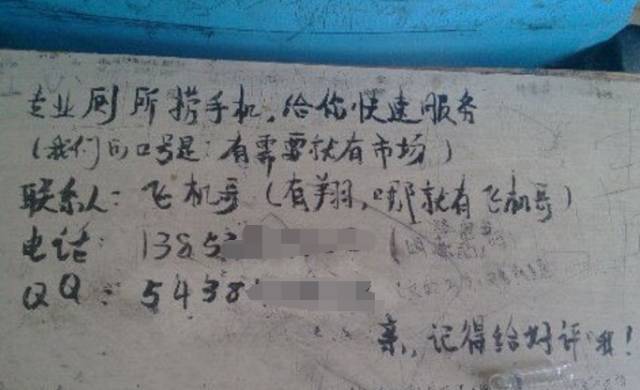 专业厕所捞手机,给你快速服务
(我们的口号是:有需要就有市场)
联系人:飞机哥(有翔,哪就有飞机哥)
电话:1385
QQ:5438
亲,记得给好评哦!